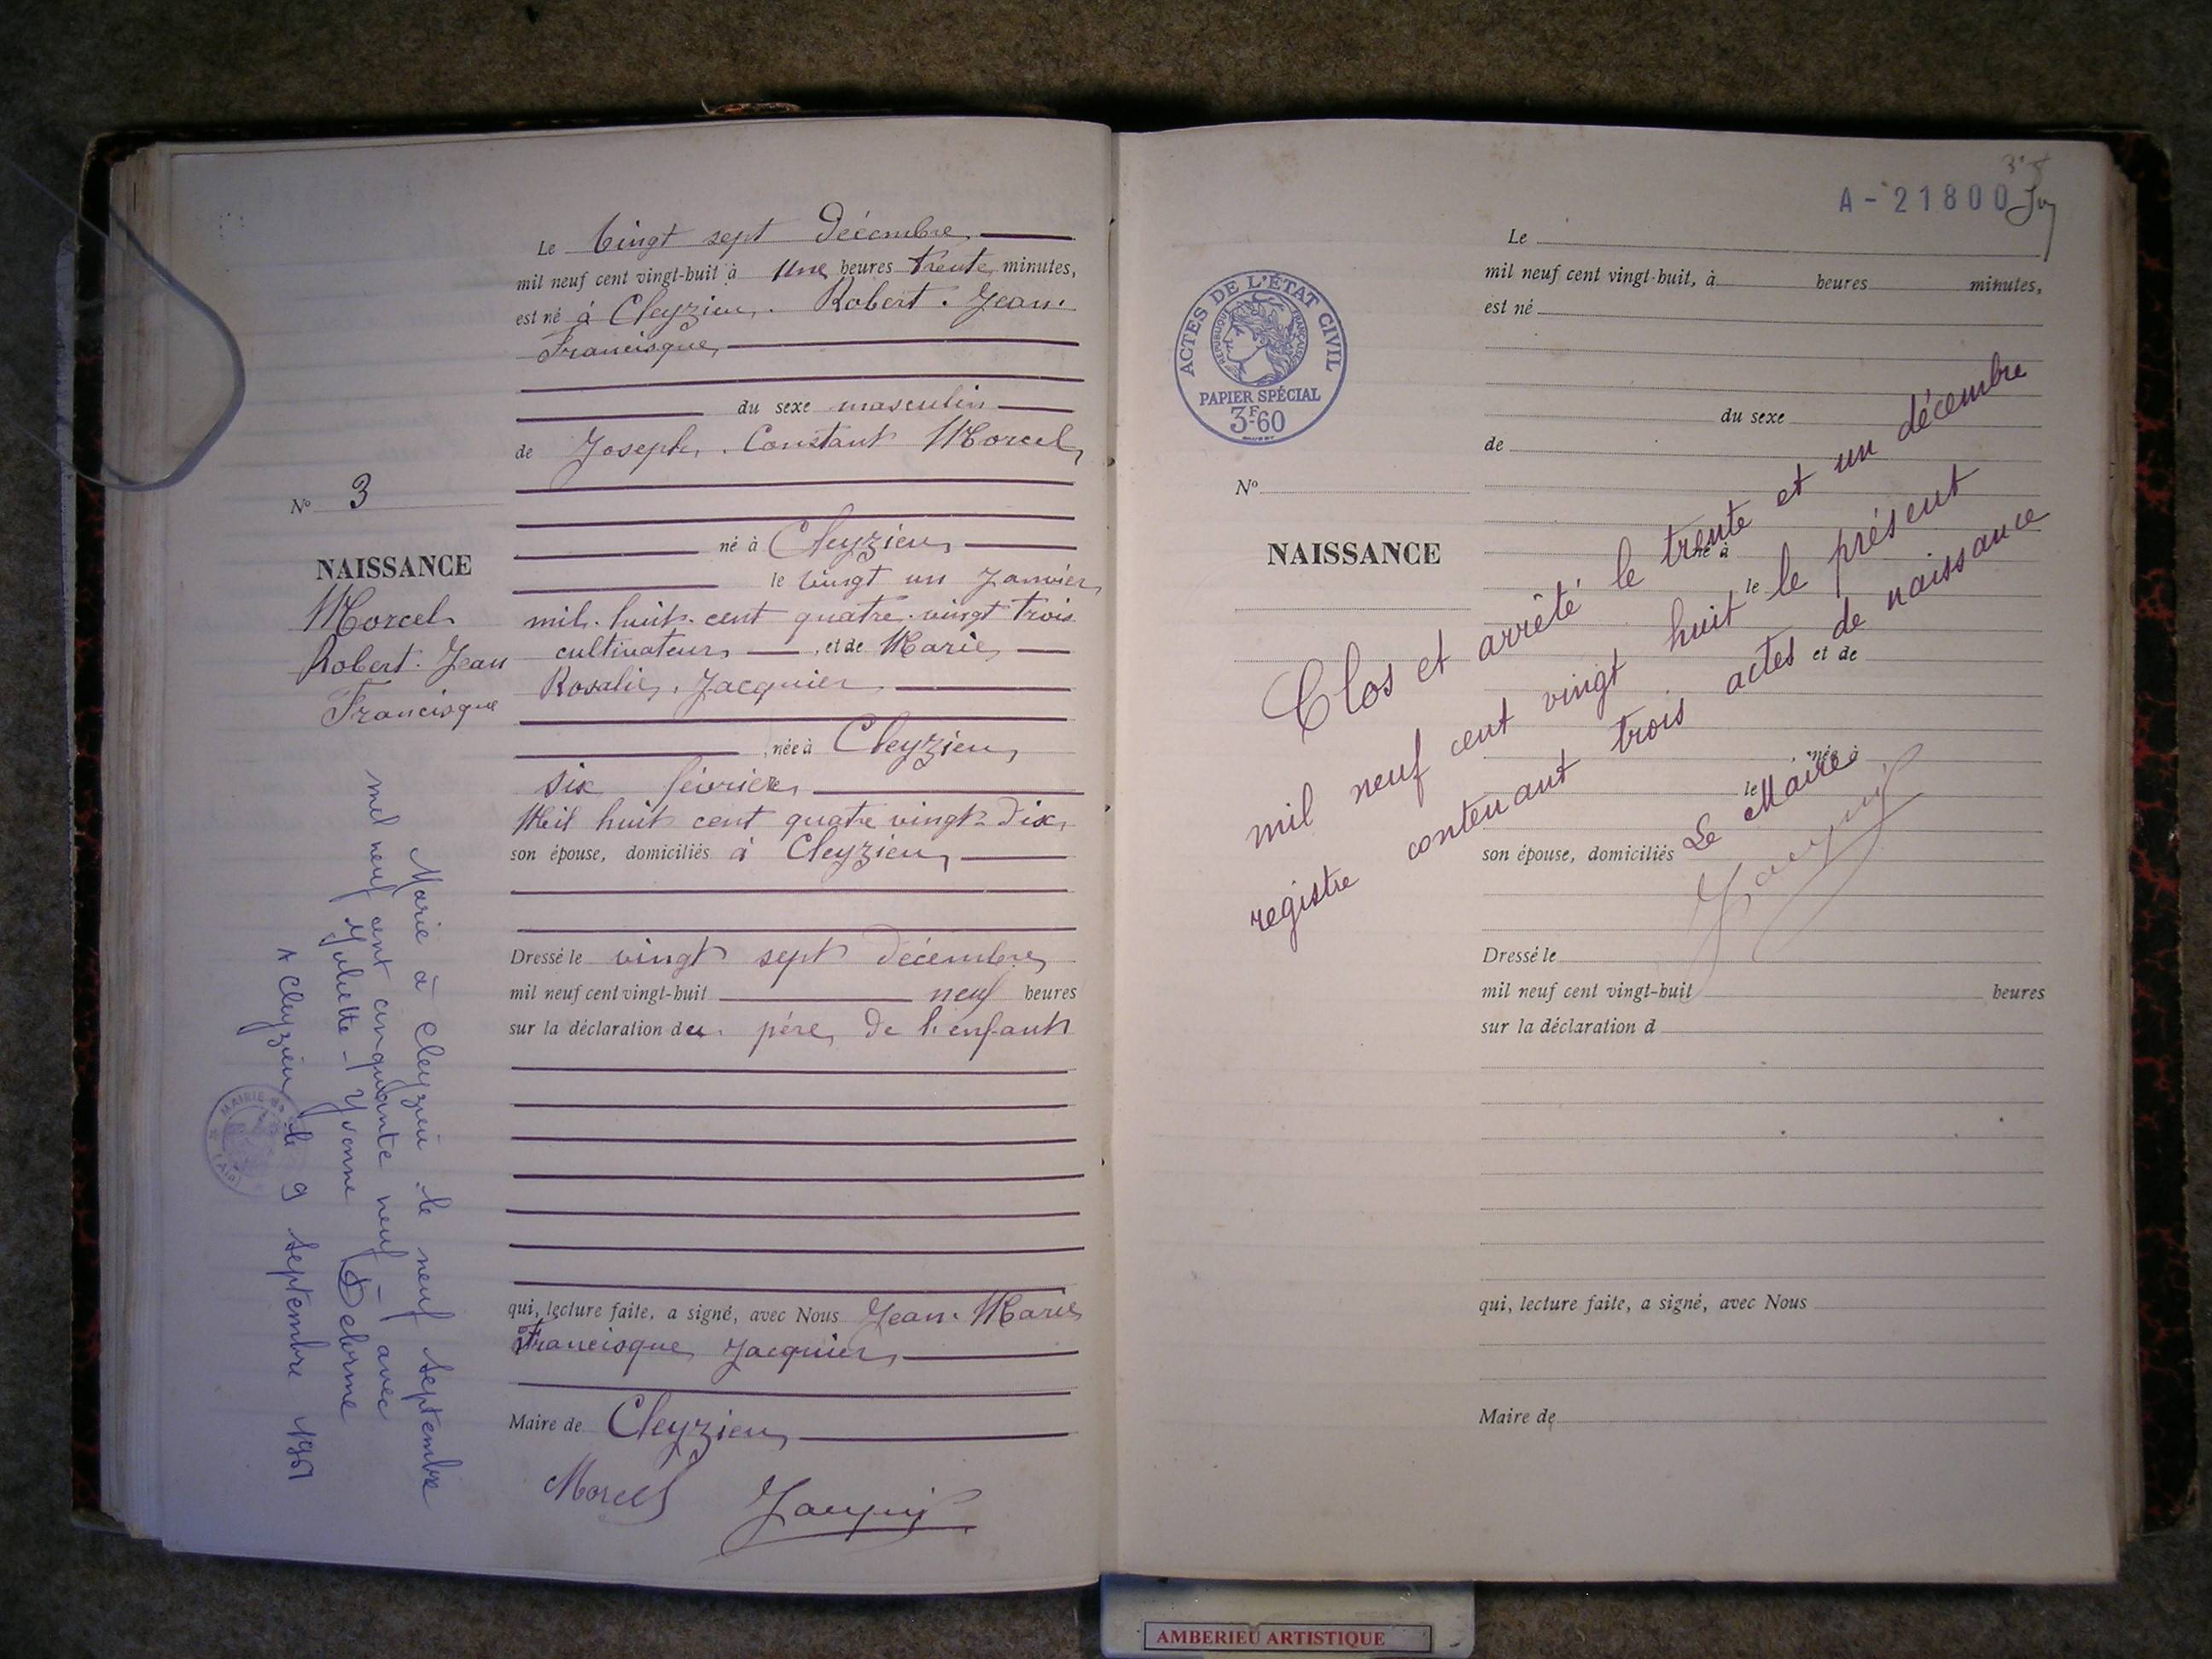 Le Vingt sept Décembre
mil neuf cent vingt-huit à une heures trente minutes,
est né à Cleyzieu. Robert. Jean.
Francisque
du sexe masculin
de Joseph. Constant Morcel
né à Cleyzieu
le vingt un Janvier
mil. huit. cent quatre. vingt trois
cultivateur, et de Marie
Rosalie. Jacquier
, née à Cleyzieu
six février
Meil huit cent quatre vingt dix
son épouse, domiciliés à Cleyzieu
Dressé le vingt sept décembre
mil neuf cent vingt-huit neuf heures
sur la déclaration du père de l'enfant
qui, lecture faite, a signé, avec Nous Jean. Marie
Francisque Jacquier
Maire de Cleyzieu
Morcel
Jacquier
Nº 3
NAISSANCE
Morcel
Robert. Jean
Francisque
Marié à Cleyzieu le neuf septembre
mil neuf cent cinquante neuf - avec
Juliette - Yvonne Delorme
A Cleyzieu le 9 septembre
MAIRIE de
A - 21800
ACTES DE L'ÉTAT CIVIL
RÉPUBLIQUE FRANÇAISE
PAPIER SPÉCIAL
3F.60
Le
mil neuf cent vingt-huit, à heures minutes,
est né
du sexe
de
Nº
NAISSANCE
né à
le
et de
née à
le
son épouse, domiciliés
Dressé le
mil neuf cent vingt-huit heures
sur la déclaration d
qui, lecture faite, a signé, avec Nous
Maire de
Clos et arrêté le trente et un décembre
mil neuf cent vingt huit le présent
registre contenant trois actes de naissance
Le Maire
Jacquier
AMBERIEU ARTISTIQUE